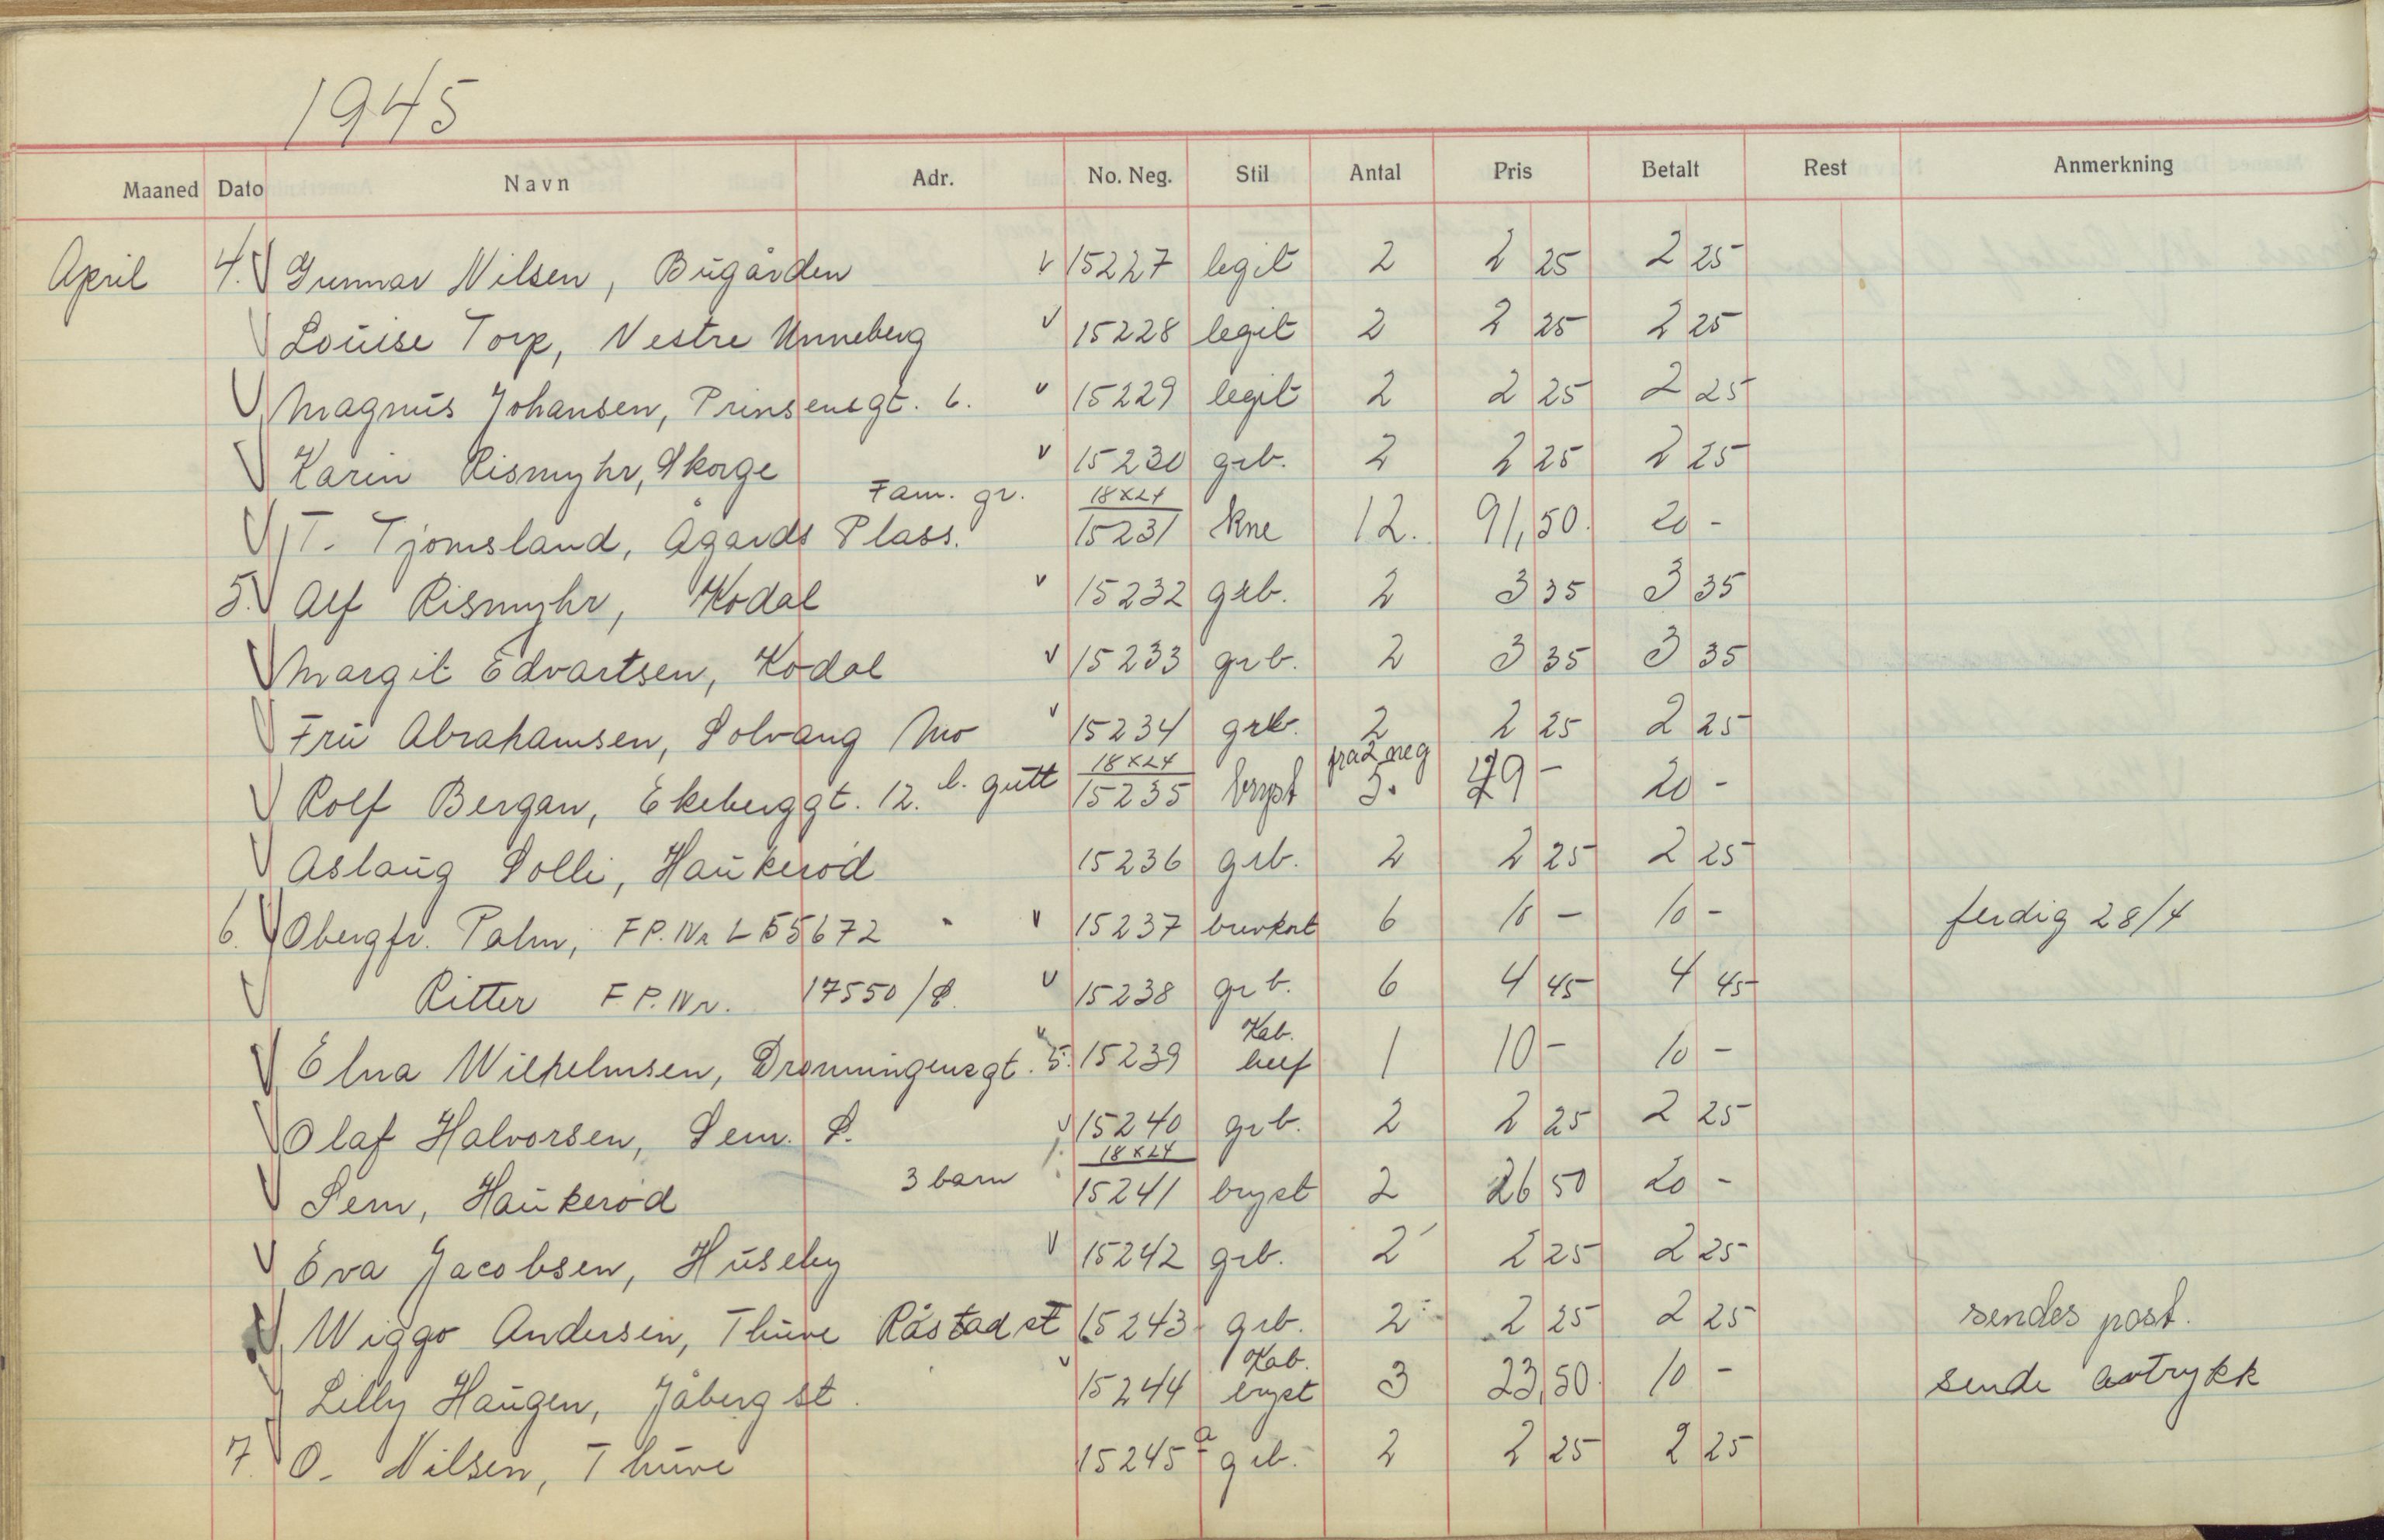 1945
Maaned Dato Navn Adr. No. Neg. Stil Antal Pris Betalt Rest Anmerkning
April 4. Gunnar Nilsen, Bugården v 15227 legit 2 2 25 2 25
Louise Torp, Vestre Unneberg v 15228 legit 2 2 25 2 25
Magnus Johansen, Prinsensgt. 6. v 15229 legit 2 2 25 2 25
Karin Rismyhr, Skorge v 15230 grb. 2 2 25 2 25
Fam. gr. 18x24
T. Tjomsland, Ågards Plass. 15231 kne 12. 91,50. 20 -
5. Alf Rismyhr, Kodal v 15232 grb. 2 3 35 3 35
Margit Edvartsen, Kodal v 15233 grb. 2 3 35 3 35
Fru Abrahamsen, Solvang Mo v 15234 grb. 2 2 25 2 25
18x24 fra 2 neg
Rolf Bergan, Ekeberggt. 12. l. gutt 15235 bryst 3. 29 - 20 -
Aslaug Solli, Haukerød 15236 grb. 2 2 25 2 25
6. Obergfr. Palm, F P. Nr L 55672 v 15237 brevkort 6 10 - 10 - ferdig 28/4
Ritter F P. Nr. 17550/S. v 15238 grb. 6 4 45 4 45
Kab.
Elna Wilhelmsen, Dronningensgt. 5. v 15239 helf 1 10 - 10 -
Olaf Halvorsen, Sem. S. v 15240 grb. 2 2 25 2 25
3 barn 18x24
Sem, Haukerød 15241 bryst 2 26 50 20 -
Eva Jacobsen, Huseby v 15242 grb. 2 2 25 2 25
Wiggo Andersen, Thuve Råstad st 15243 grb. 2 2 25 2 25 sendes post.
Kab.
Lilly Haugen, Jåberg st. v 15244 bryst 3 23,50. 10 - sende avtrykk
7. O. Nilsen, Thuve 15245 a grb. 2 2 25 2 25